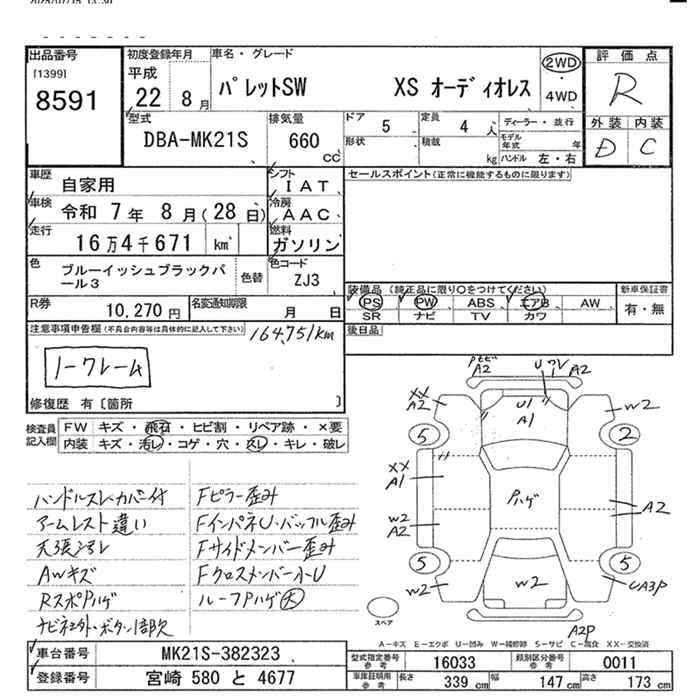 出品番号
[1399]
8591
初度登録年月
平成
22 8月
車名・グレード
パレットSW XS オーディオレス
2WD
・
4WD
評価点
R
型式
DBA-MK21S
排気量
660
CC
ドア
5
定員
4 人
ディーラー・並行
形状
積載
kg
モデル年式 年
ハンドル 左・右
外装 内装
D C
車歴
自家用
シフト
IAT
セールスポイント(正常に機能するものに限ります)
車検
令和 7年 8月(28日)
冷房
AAC
走行
16万4千671 km
燃料
ガソリン
色
ブルーイッシュブラックパール3
色替
色コード
ZJ3
装備品(純正品に限り○をつけてください)
PS PW ABS エアB AW
SR ナビ TV カワ
新車保証書
有・無
R券
10,270円
名変通知期限
月 日
後日品
注意事項申告欄(不具合内容等は具体的に記入して下さい)
164,751km
ノークレーム
修復歴 有〔箇所 〕
検査員記入欄
FW キズ・飛石・ヒビ割・リペア跡・×要
内装 キズ・汚レ・コゲ・穴・スレ・キレ・破レ
ハンドルスレ・カバー付 Fピラー歪み
アームレスト違い FインパネU・バッフル歪み
天張汚レ Fサイドメンバー歪み
AWキズ Fクロスメンバー小U
RスポPハゲ ルーフPハゲ大
ナビ取外・ボタン1部欠
A2
A2
XX
A2
U1
A1
W2
5
2
XX
A1
Pハゲ
W2
A2
A2
5
5
W2
W2
UA3P
スペア
A2P
A-キズ E-エクボ U-凹み W-補修跡 S-サビ C-腐食 XX-交換済
車台番号
MK21S-382323
型式指定番号
参考
16033
類別区分番号
参考
0011
登録番号
宮崎 580 と 4677
車庫証明用
参考
長さ
339 cm
幅
147 cm
高さ
173 cm